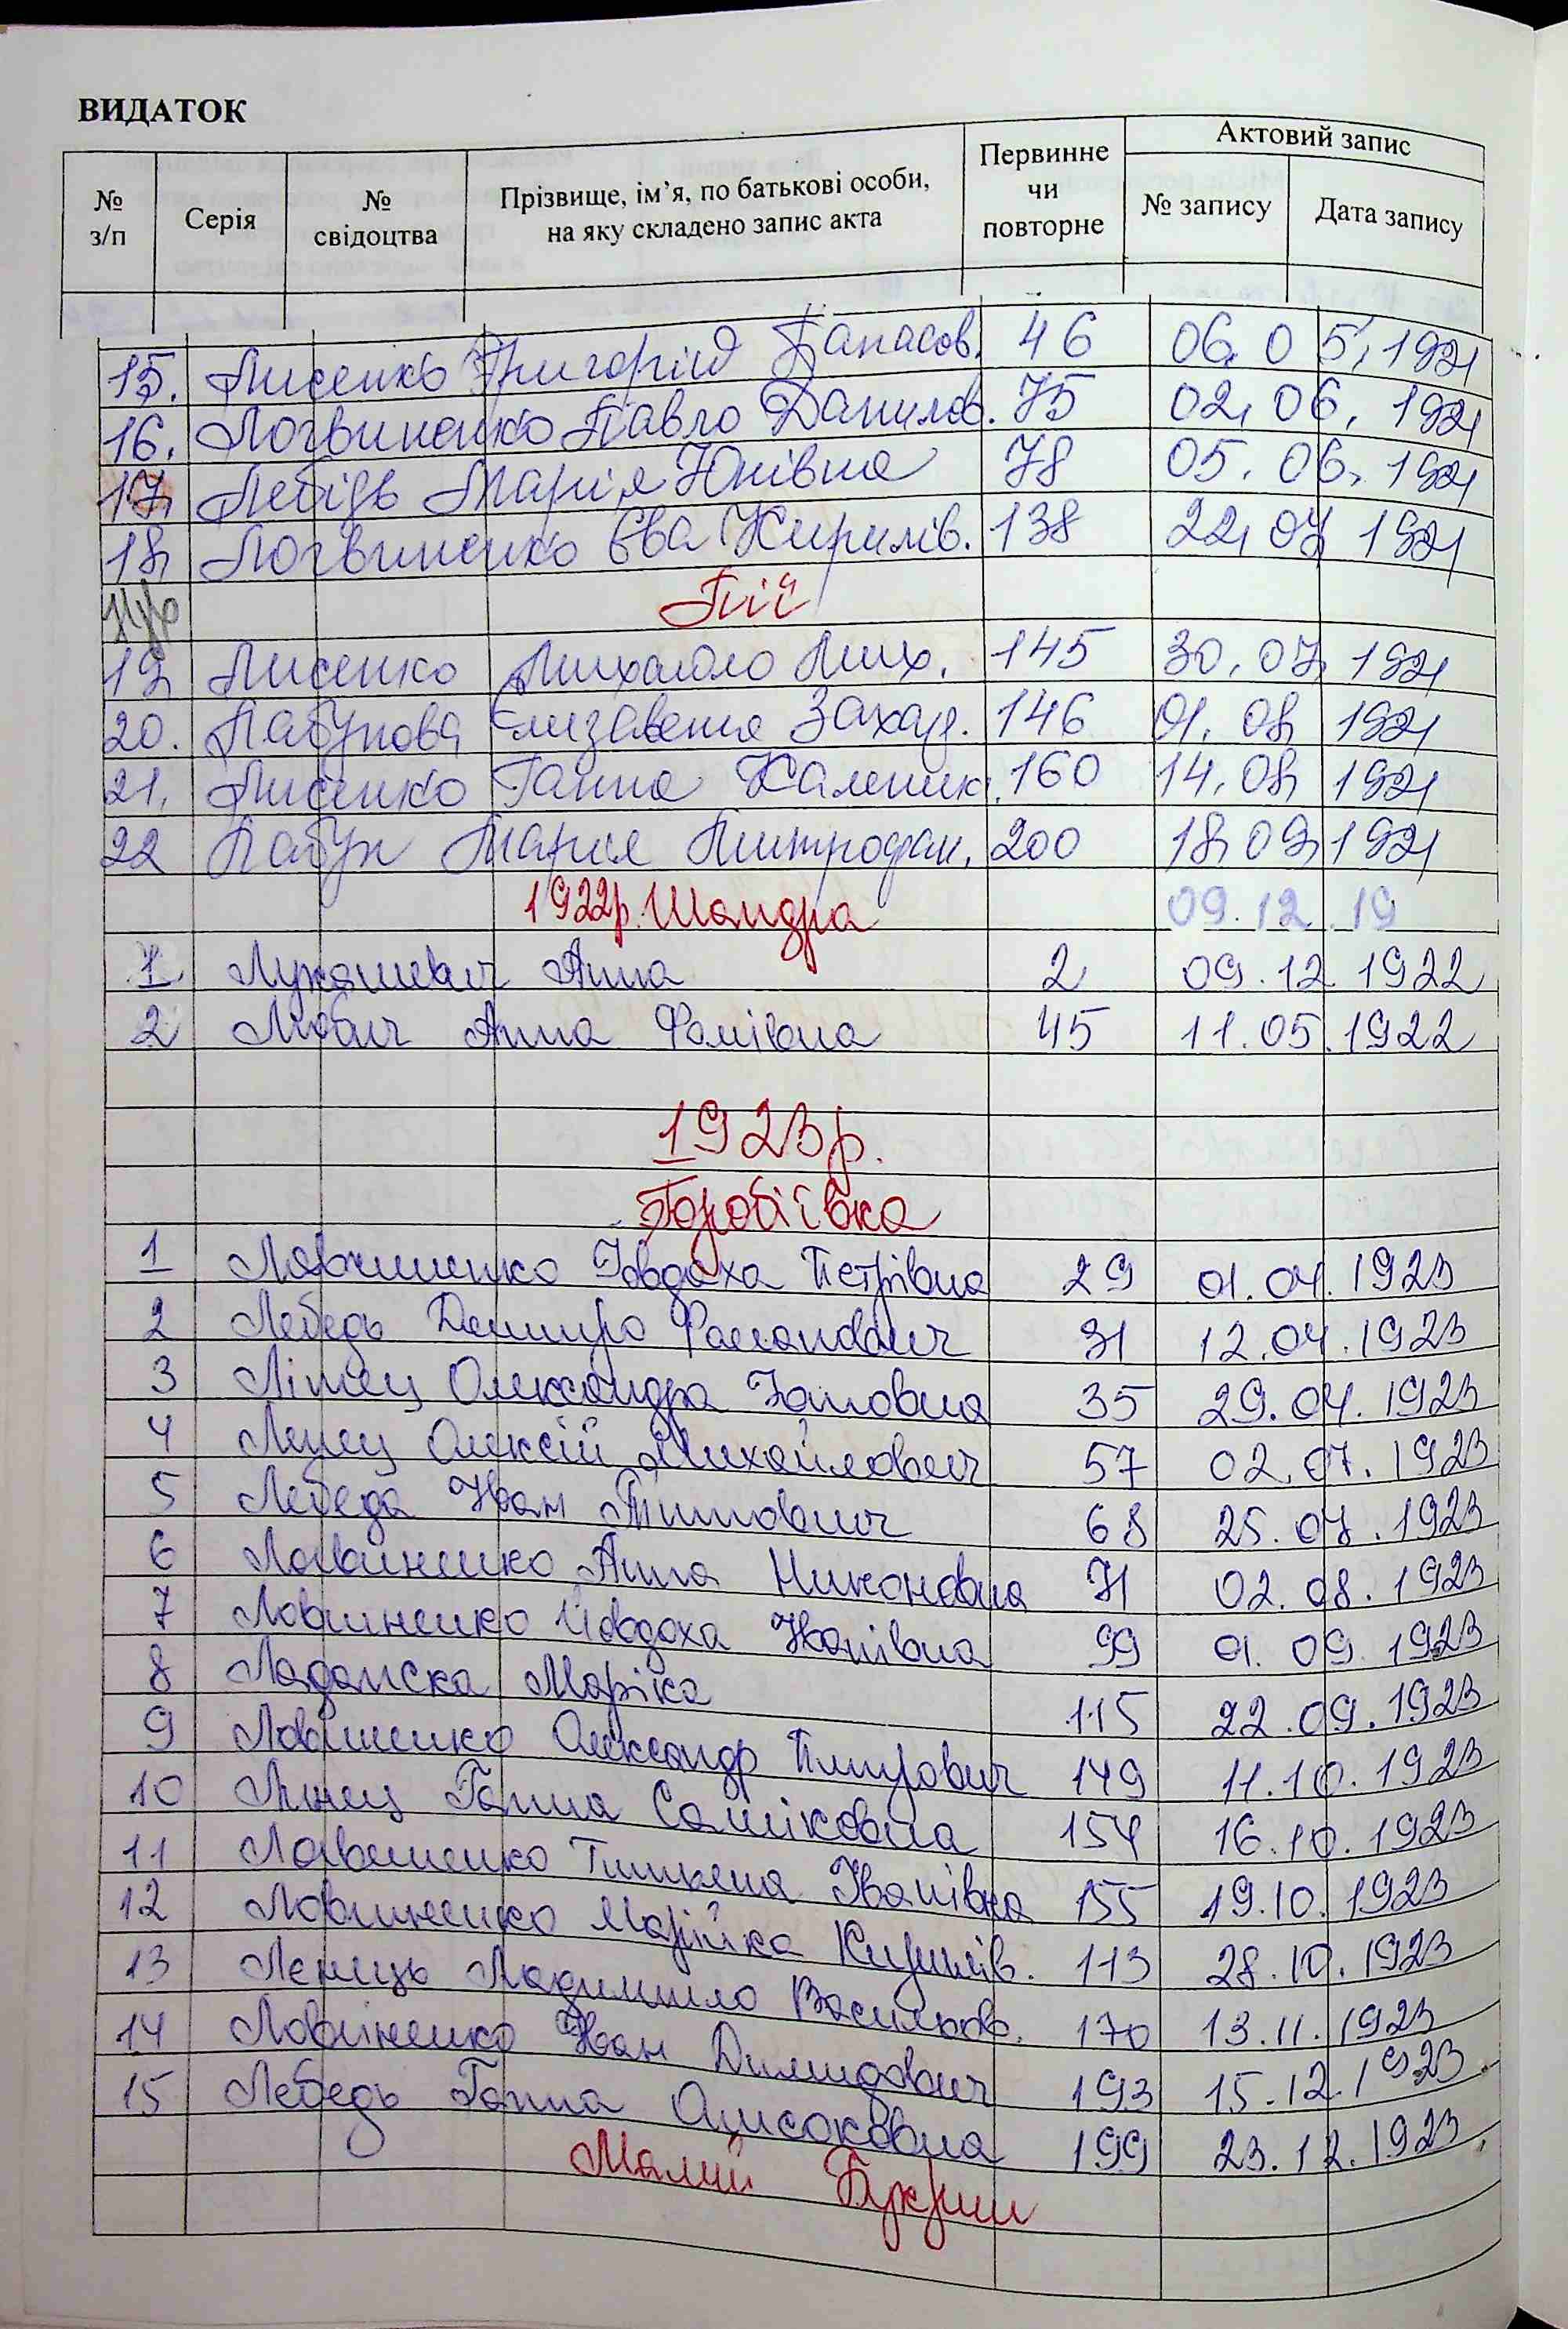 ВИДАТОК
№ з/п Серія № свідоцтва Прізвище, ім’я, по батькові особи, на яку складено запис акта Первинне чи повторне Актовий запис № запису Дата запису
15. Лисенко Григорій Панасов. 46 06.05.1921
16. Логвиненко Павло Данилов. 75 02.06.1921
17. Лебідь Марія Юхівна 78 05.06.1921
18. Логвиненко Єва Кирилів. 138 22.07 1921
Пії
19 Лисенко Михайло Мих. 145 30.07 1921
20. Лабунова Єлизавета Захар. 146 01.08 1921
21. Лисенко Ганна Каленик. 160 14.08 1921
22 Лабун Марія Митрофан. 200 18.09 1921
1922р. Шандра 09.12.19
1 Лукашевич Анна 2 09.12 1922
2 Любич Анна Фомівна 45 11.05.1922
1923р.
Горобіївка
1 Явдоха Петрівна 29 01.04.1923
2 Лебедь Дмитро 31 12.04.1923
3 Олександра 35 29.04.1923
4 Олексій Михайлович 57 02.07.1923
5 Лебеда Иван 68 25.07.1923
6 Ловиненко Анна Никоновна 71 02.08.1923
7 Ловиненко Йовдоха Иванівна 99 01.09.1923
8 Ладанска Маріка 115 22.09.1923
9 Олександр 149 11.10.1923
10 Ганна 154 16.10.1923
11 Іванівна 155 19.10.1923
12 Ловиненко Марійка Кирилів. 113 28.10.1923
13 Васильов. 170 13.11.1923
14 Ловиненко Иван 193 15.12.1923
15 Лебедь Ганна 199 23.12.1923
Малий Букрин